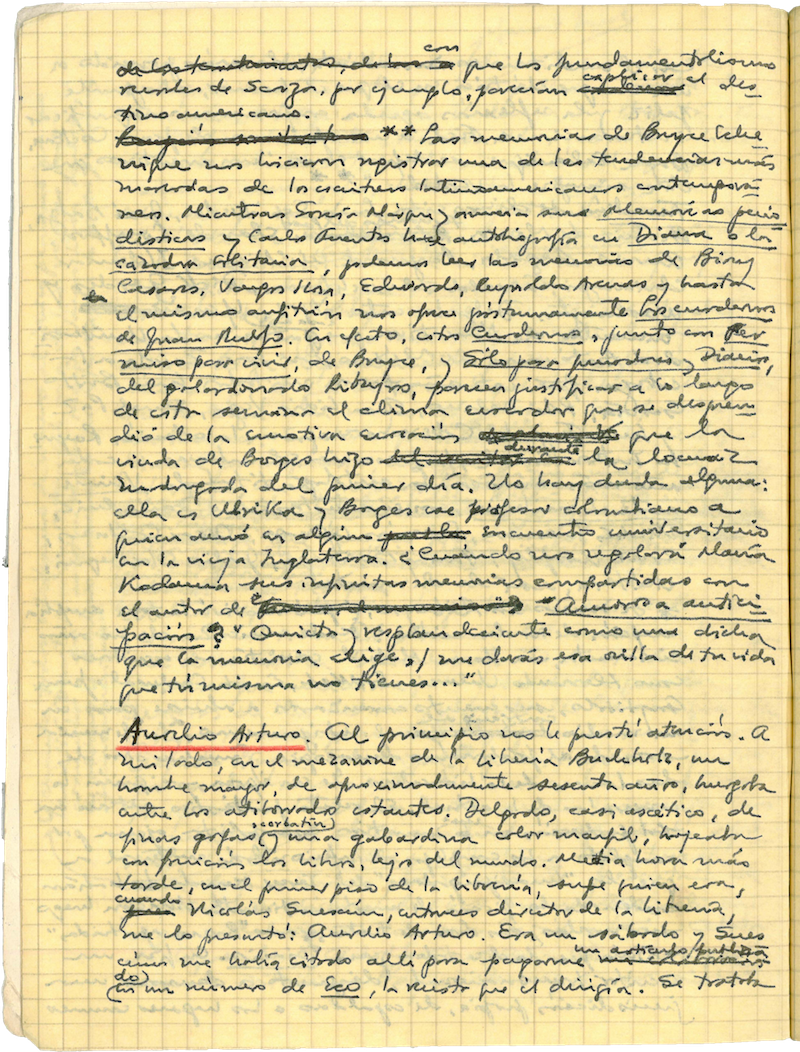 con
que los fundamentalismos
rurales de Sarza, por ejemplo, parecían explicar el des
tino americano.
** Las memorias de Bryce Eche
nique nos hicieron registrar una de las tendencias más
marcadas de los escritores latinoamericanos contemporá
neos. Mientras García Márquez anuncia sus Memorias perio
dísticas y Carlos Fuentes hace autobiografía en Diana o la
cazadora solitaria, podemos leer las memorias de Bioy
Casares, Vargas Llosa, Edwards, Reynaldo Arenas y hasta
el mismo anfitrión nos ofrece póstumamente Los cuadernos
de Juan Rulfo. En efecto, estos Cuadernos, junto con Per
miso para vivir, de Bryce, y Sólo para fumadores y Diarios,
del galardonado Ribeyro, parecen justificar a lo largo
de esta semana el clima evocador que se despren
dió de la emotiva evocación que la
viuda de Borges hizo durante la locuaz
madrugada del primer día. No hay duda alguna:
ella es Ulrika y Borges ese profesor colombiano a
quien amó en algún encuentro universitario
en la vieja Inglaterra. ¿Cuándo nos regalará María
Kodama sus infinitas memorias compartidas con
el autor de "Amorosa antici
pación"? "Quieta y resplandeciente como una dicha
que la memoria elige, / me darás esa orilla de tu vida
que tú misma no tienes..."
Aurelio Arturo. Al principio no le presté atención. A
mi lado, en el mezanine de la librería Buchholz, un
hombre mayor, de aproximadamente sesenta años, hurgaba
entre los atiborrados estantes. Delgado, casi ascético, de
finas gafas, corbatín y una gabardina color marfil, hojeaba
con fruición los libros, lejos del mundo. Media hora más
tarde, en el primer piso de la librería, supe quien era,
cuando Nicolás Suescún, entonces director de la librería,
me lo presentó: Aurelio Arturo. Era un sábado y Sues
cún me había citado allí para pagarme un artículo publica
do en un número de Eco, la revista que él dirigía. Se trataba